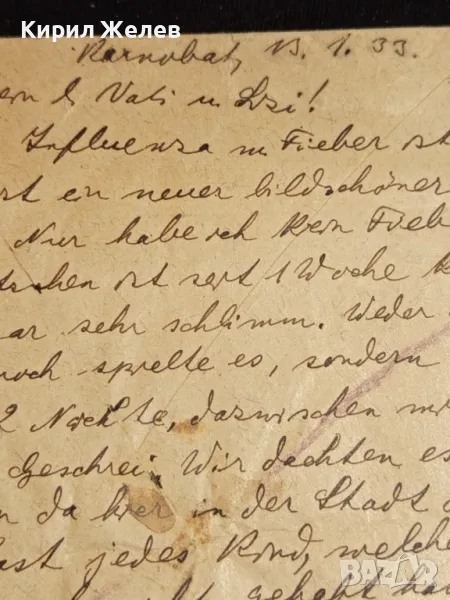 Кирил Желев
Karnobat, 13. 1. 33.
Vati u. Lisi!
Influenza m Fieber ist
ein neuer bildschöner
Nur habe ich kein Fieb
ist seit 1 Woche k
ar sehr schlimm. Weder
noch spielte es, sondern
2 Nächte, dazwischen
Geschrei. Wir dachten es
n da hier in der Stadt
fast jedes Kind, welche
gehabt
BAZAR